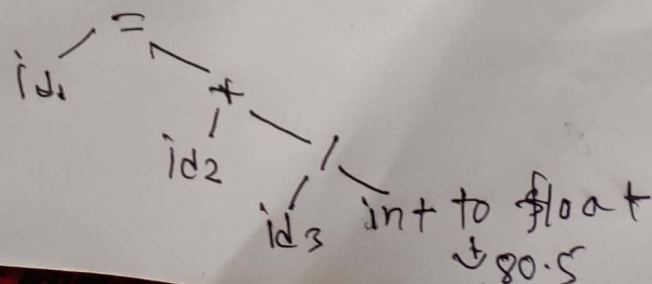 =
id1
+
id2
/
id3 int to float
80.5